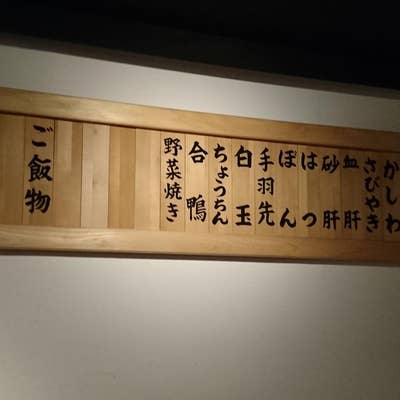 かしわ
さびやき
血肝
砂肝
はつ
ぼん
手羽先
白玉
ちょうちん
合鴨
野菜焼き
ご飯物